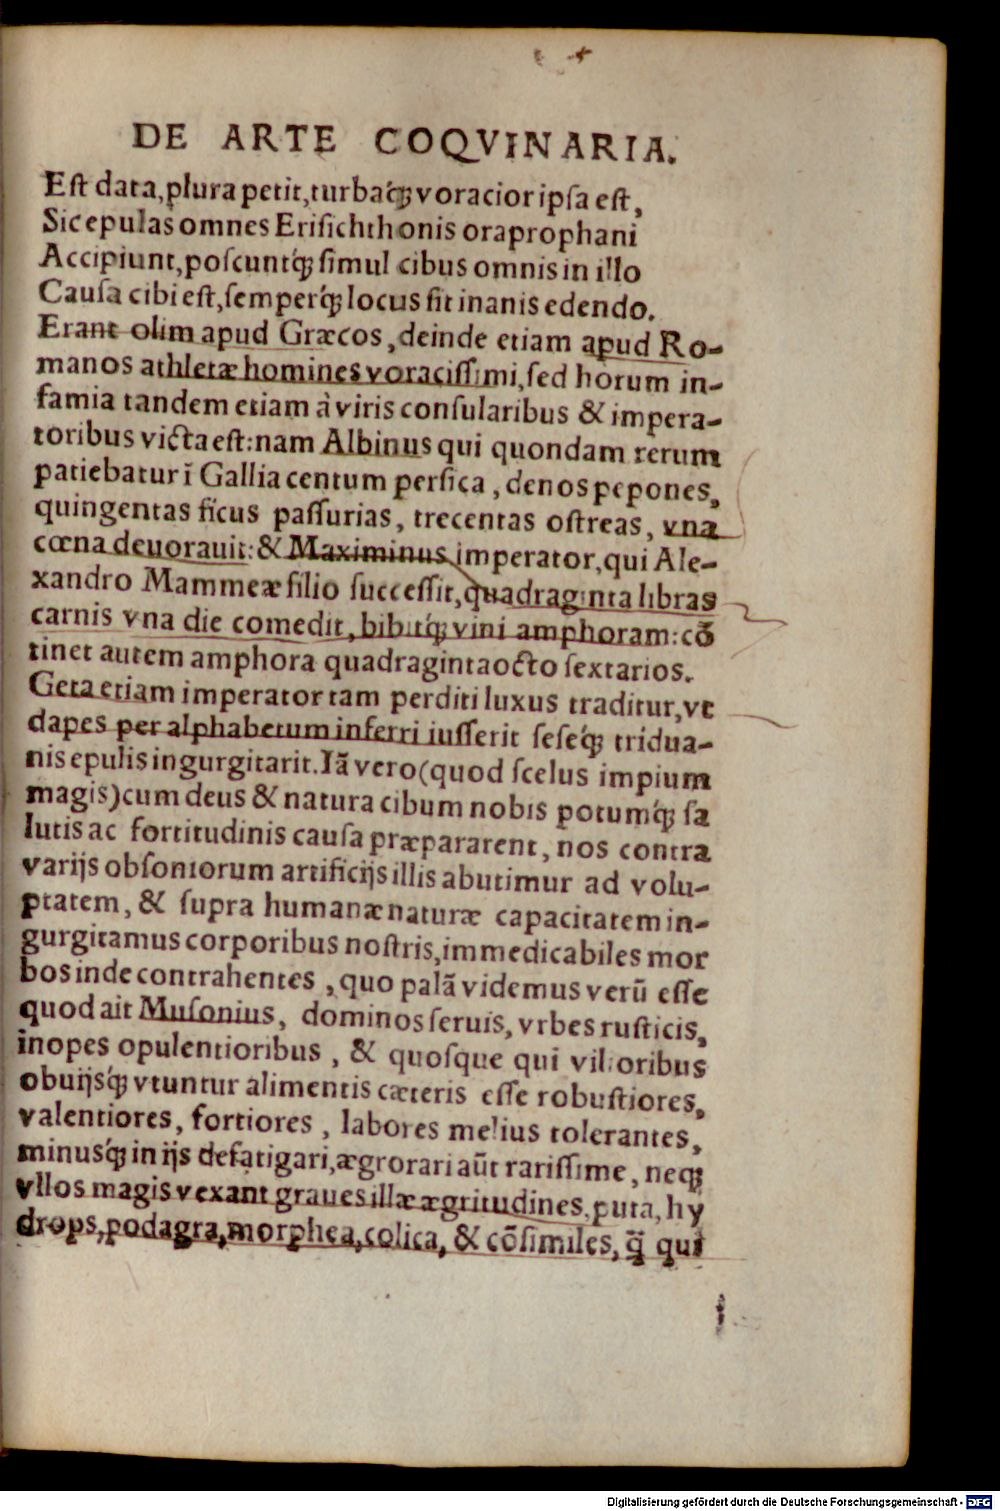 DE ARTE COQVINARIA.
Est data, plura petit, turbaq́ꝫ voracior ipsa est,
Sic epulas omnes Erisichthonis ora prophani
Accipiunt, poscuntq́ꝫ simul cibus omnis in illo
Causa cibi est, semperq́ꝫ locus fit inanis edendo.
Erant olim apud Græcos, deinde etiam apud Ro-
manos athletæ homines voracissimi, sed horum in-
famia tandem etiam à viris consularibus & impera-
toribus victa est: nam Albinus qui quondam rerum
patiebatur ī Gallia centum persica, denos pepones,
quingentas ficus passurias, trecentas ostreas, vna
cœna deuorauit: & Maximinus imperator, qui Ale-
xandro Mammeæ filio successit, quadraginta libras
carnis vna die comedit, bibitq́ꝫ vini amphoram: cō
tinet autem amphora quadragintaocto sextarios.
Geta etiam imperator tam perditi luxus traditur, vt
dapes per alphabetum inferri iusserit seseq́ꝫ tridua-
nis epulis ingurgitarit. Iā vero (quod scelus impium
magis) cum deus & natura cibum nobis potumq́ꝫ sa
lutis ac fortitudinis causa præpararent, nos contra
varijs obsoniorum artificijs illis abutimur ad volu-
ptatem, & supra humanæ naturæ capacitatem in-
gurgitamus corporibus nostris, immedicabiles mor
bos inde contrahentes, quo palā videmus verū esse
quod ait Musonius, dominos seruis, vrbes rusticis,
inopes opulentioribus, & quosque qui vilioribus
obuijsq́ꝫ vtuntur alimentis cæteris esse robustiores,
valentiores, fortiores, labores melius tolerantes,
minusq́ꝫ in ijs defatigari, ægrotari aūt rarissime, neqꝫ
vllos magis vexant graues illæ ægritudines, puta, hy
drops, podagra, morphea, colica, & cōsimiles, q̄ qui
Digitalisierung gefördert durch die Deutsche Forschungsgemeinschaft - DFG